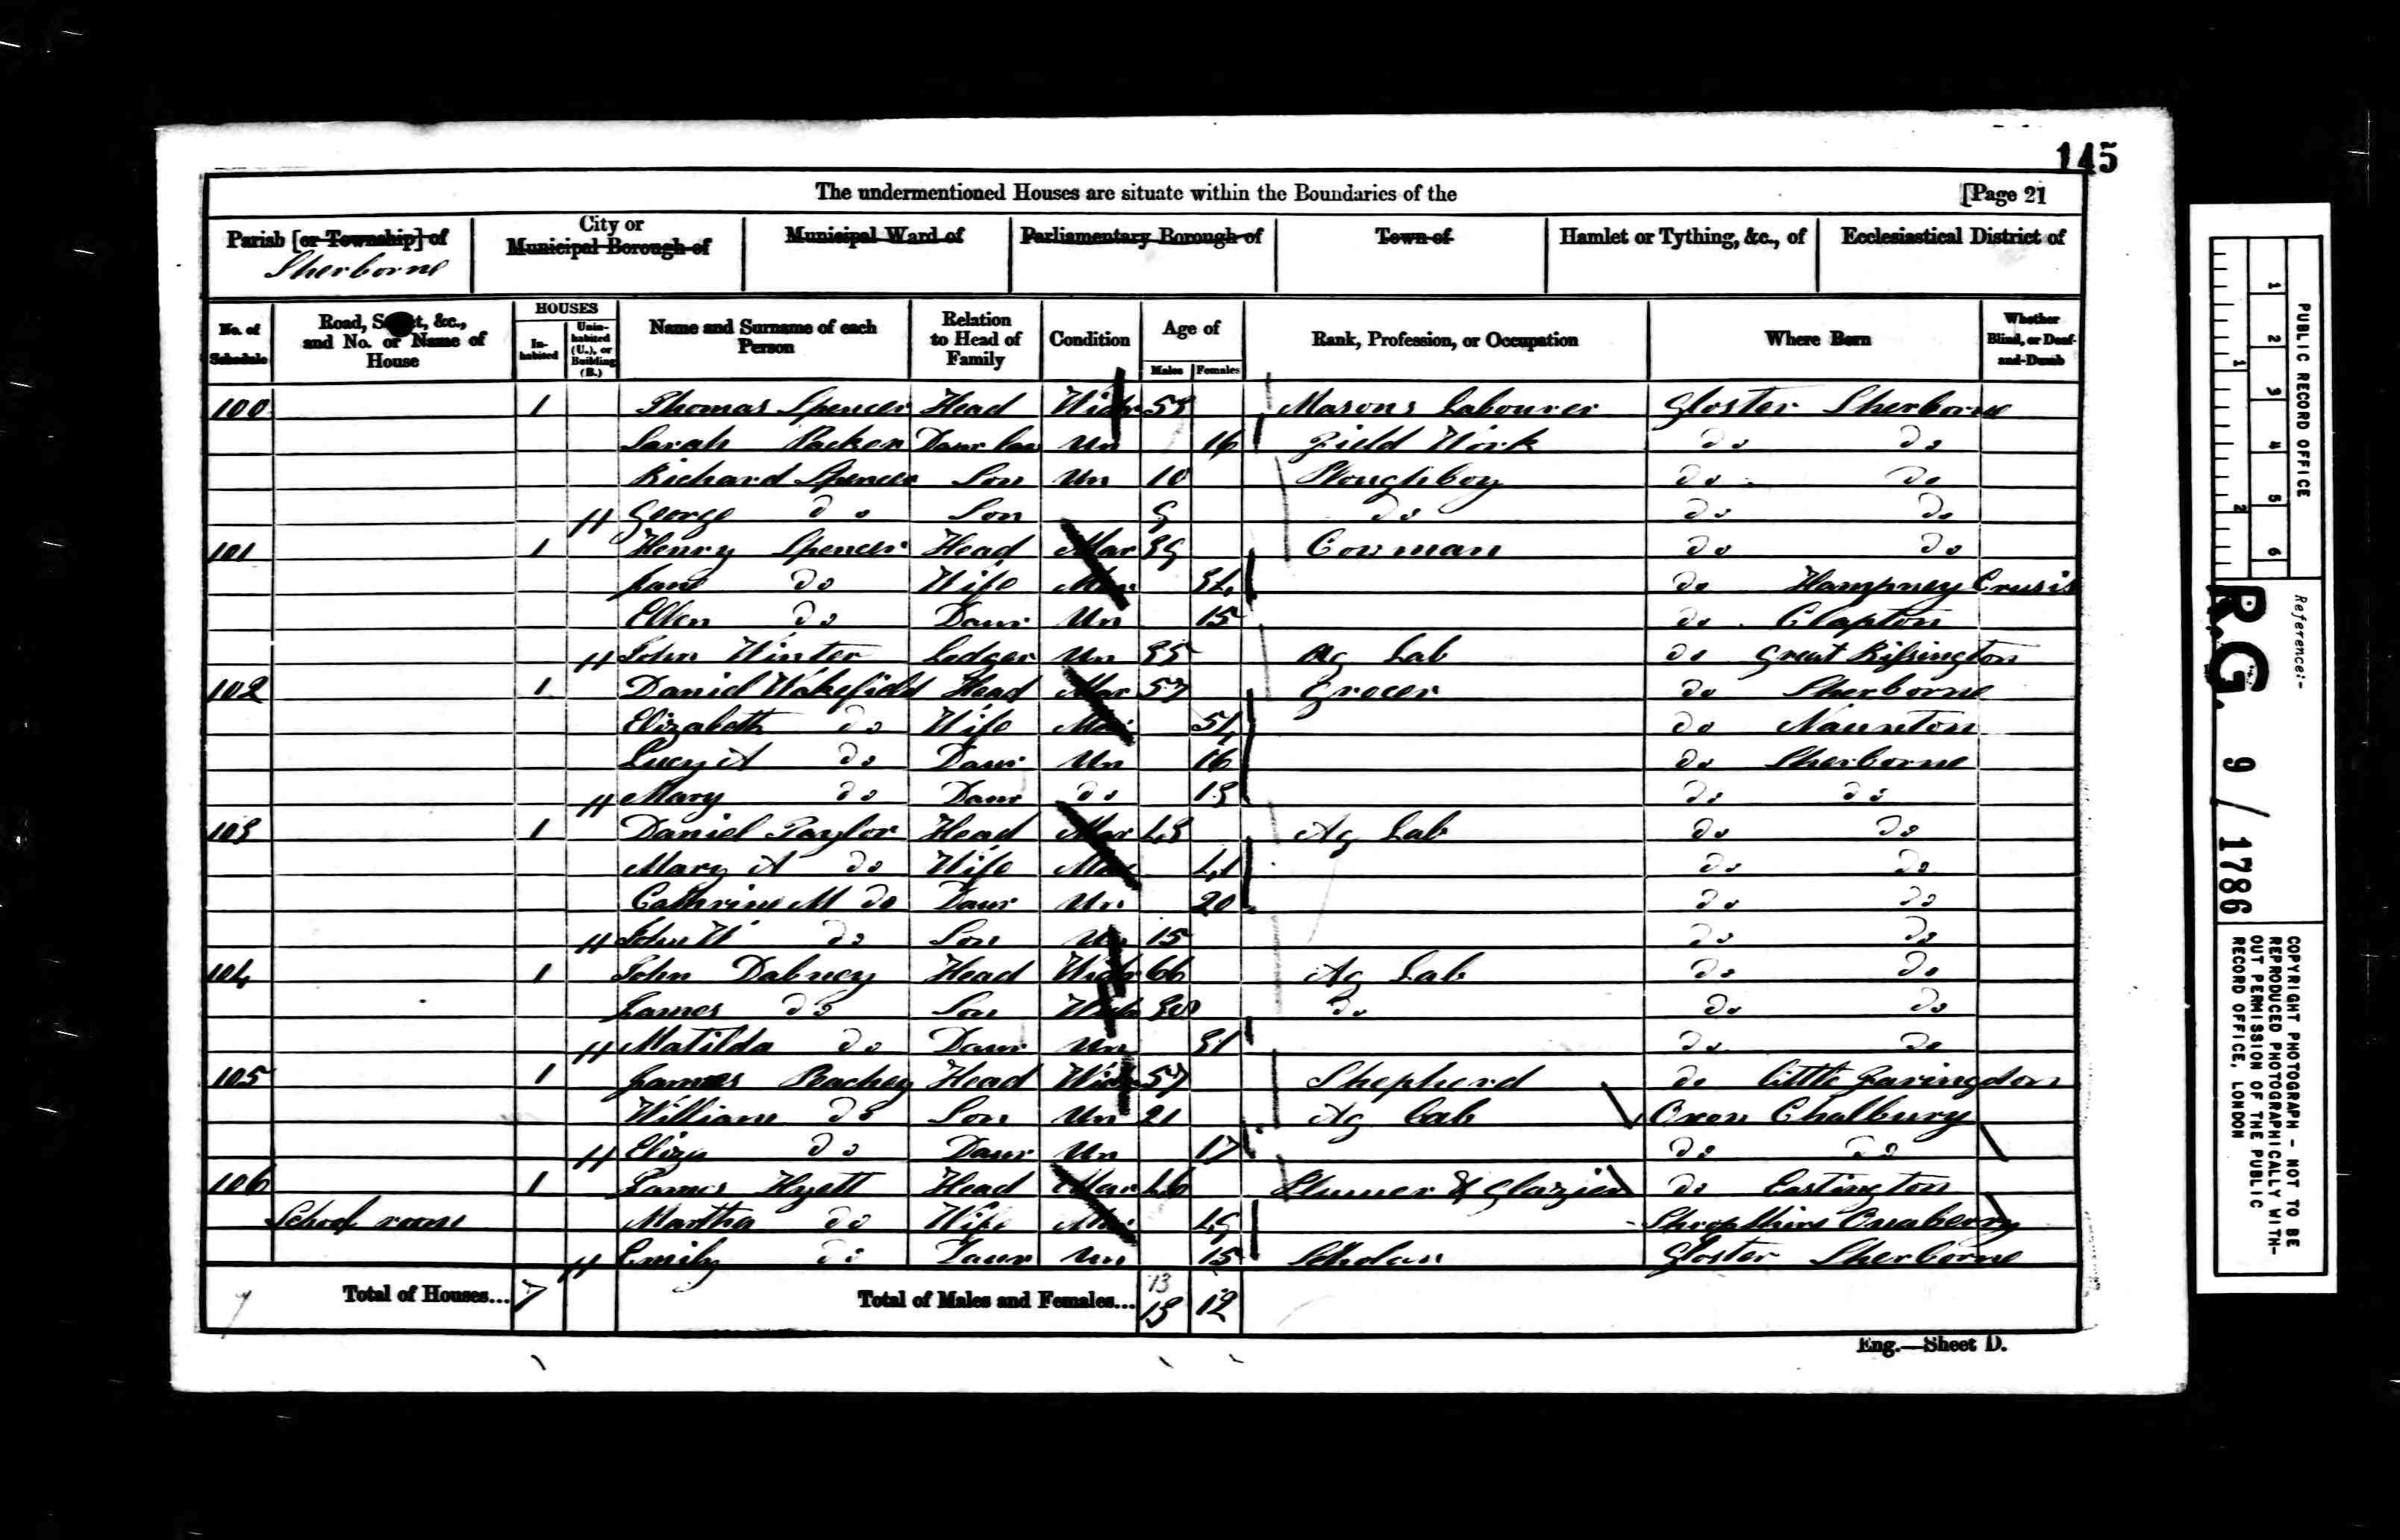 145
The undermentioned Houses are situate within the Boundaries of the [Page 21
Parish [or Township] of Sherborne
City or Municipal Borough of
Municipal Ward of
Parliamentary Borough of
Town of
Hamlet or Tything, &c., of
Ecclesiastical District of
No. of Schedule
Road, &c., and No. or Name of House
HOUSES
In-habited
Unin-habited (U.), or Building (B.)
Name and Surname of each Person
Relation to Head of Family
Condition
Age of
Males Females
Rank, Profession, or Occupation
Where Born
Whether Blind, or Deaf-and-Dumb
100 1 Thomas Spencer Head Widr Masons Labourer Gloster Sherborne
Sarah Un 16 Field Work do do
Richard Spencer Son Un 10 Ploughboy do do
George do Son 9 do do do
101 1 Henry Spencer Head Mar 39 Cowman do do
Jane do Wife Mar do Hampney Crusis
Ellen do Daur Un 15 do Clapton
John Winter Lodger Un 35 Ag Lab do Great Rissington
102 1 Daniel Wakefield Head Mar 57 Grocer do Sherborne
Elizabeth do Wife Mar do Naunton
Lucy A do Daur Un 16 do Sherborne
Mary do Daur do 13 do do
103 1 Daniel Taylor Head Mar 43 Ag Lab do do
Mary A do Wife Mar 41 do do
Cathrine M do Daur Un 20 do do
John W do Son Un 15 do do
104 1 John Head Widr 66 Ag Lab do do
James do Son do do do
Matilda do Daur Un 31 do do
105 1 James Head Widr 57 Shepherd do Little Faringdon
William do Son Un 21 Ag Lab Oxon Chalbury
Eliza do Daur Un 17 do do
106 1 James Hyett Head Mar 46 Plumer & Glazier do Eastington
School room Martha do Wife Mar 49 Shropshire Onabery
Emily do Daur Un 15 Scholar Gloster Sherborne
7 Total of Houses... 7 Total of Males and Females... 13 13 12
Eng.—Sheet D.
1 2 3 4 5 6
1 2
PUBLIC RECORD OFFICE
Reference:-
R.G. 9 / 1786
COPYRIGHT PHOTOGRAPH - NOT TO BE
REPRODUCED PHOTOGRAPHICALLY WITH-
OUT PERMISSION OF THE PUBLIC
RECORD OFFICE, LONDON